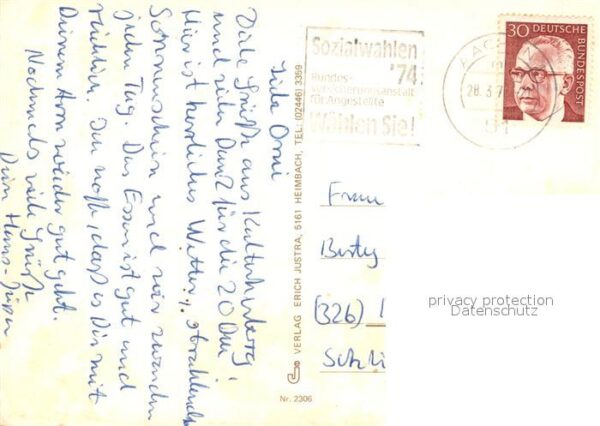 Liebe Omi
Viele Grüße aus Kalterherberg
und vielen Dank für die 20 DM.
Hier ist herrliches Wetter, strahlender
Sonnenschein und wir wandern
jeden Tag. Das Essen ist gut und
reichlich. Ich hoffe, daß es Dir mit
Deinem Arm wieder gut geht.
Nochmals viele Grüße
Dein Hans-Jürgen
VERLAG ERICH JUSTRA, 5161 HEIMBACH, TEL: (02446) 3359
Nr. 2306
Sozialwahlen
'74
Bundes-
versicherungsanstalt
für Angestellte
Wählen Sie!
28.3.7
30 DEUTSCHE
BUNDESPOST
Frau
(326)
privacy protection
Datenschutz